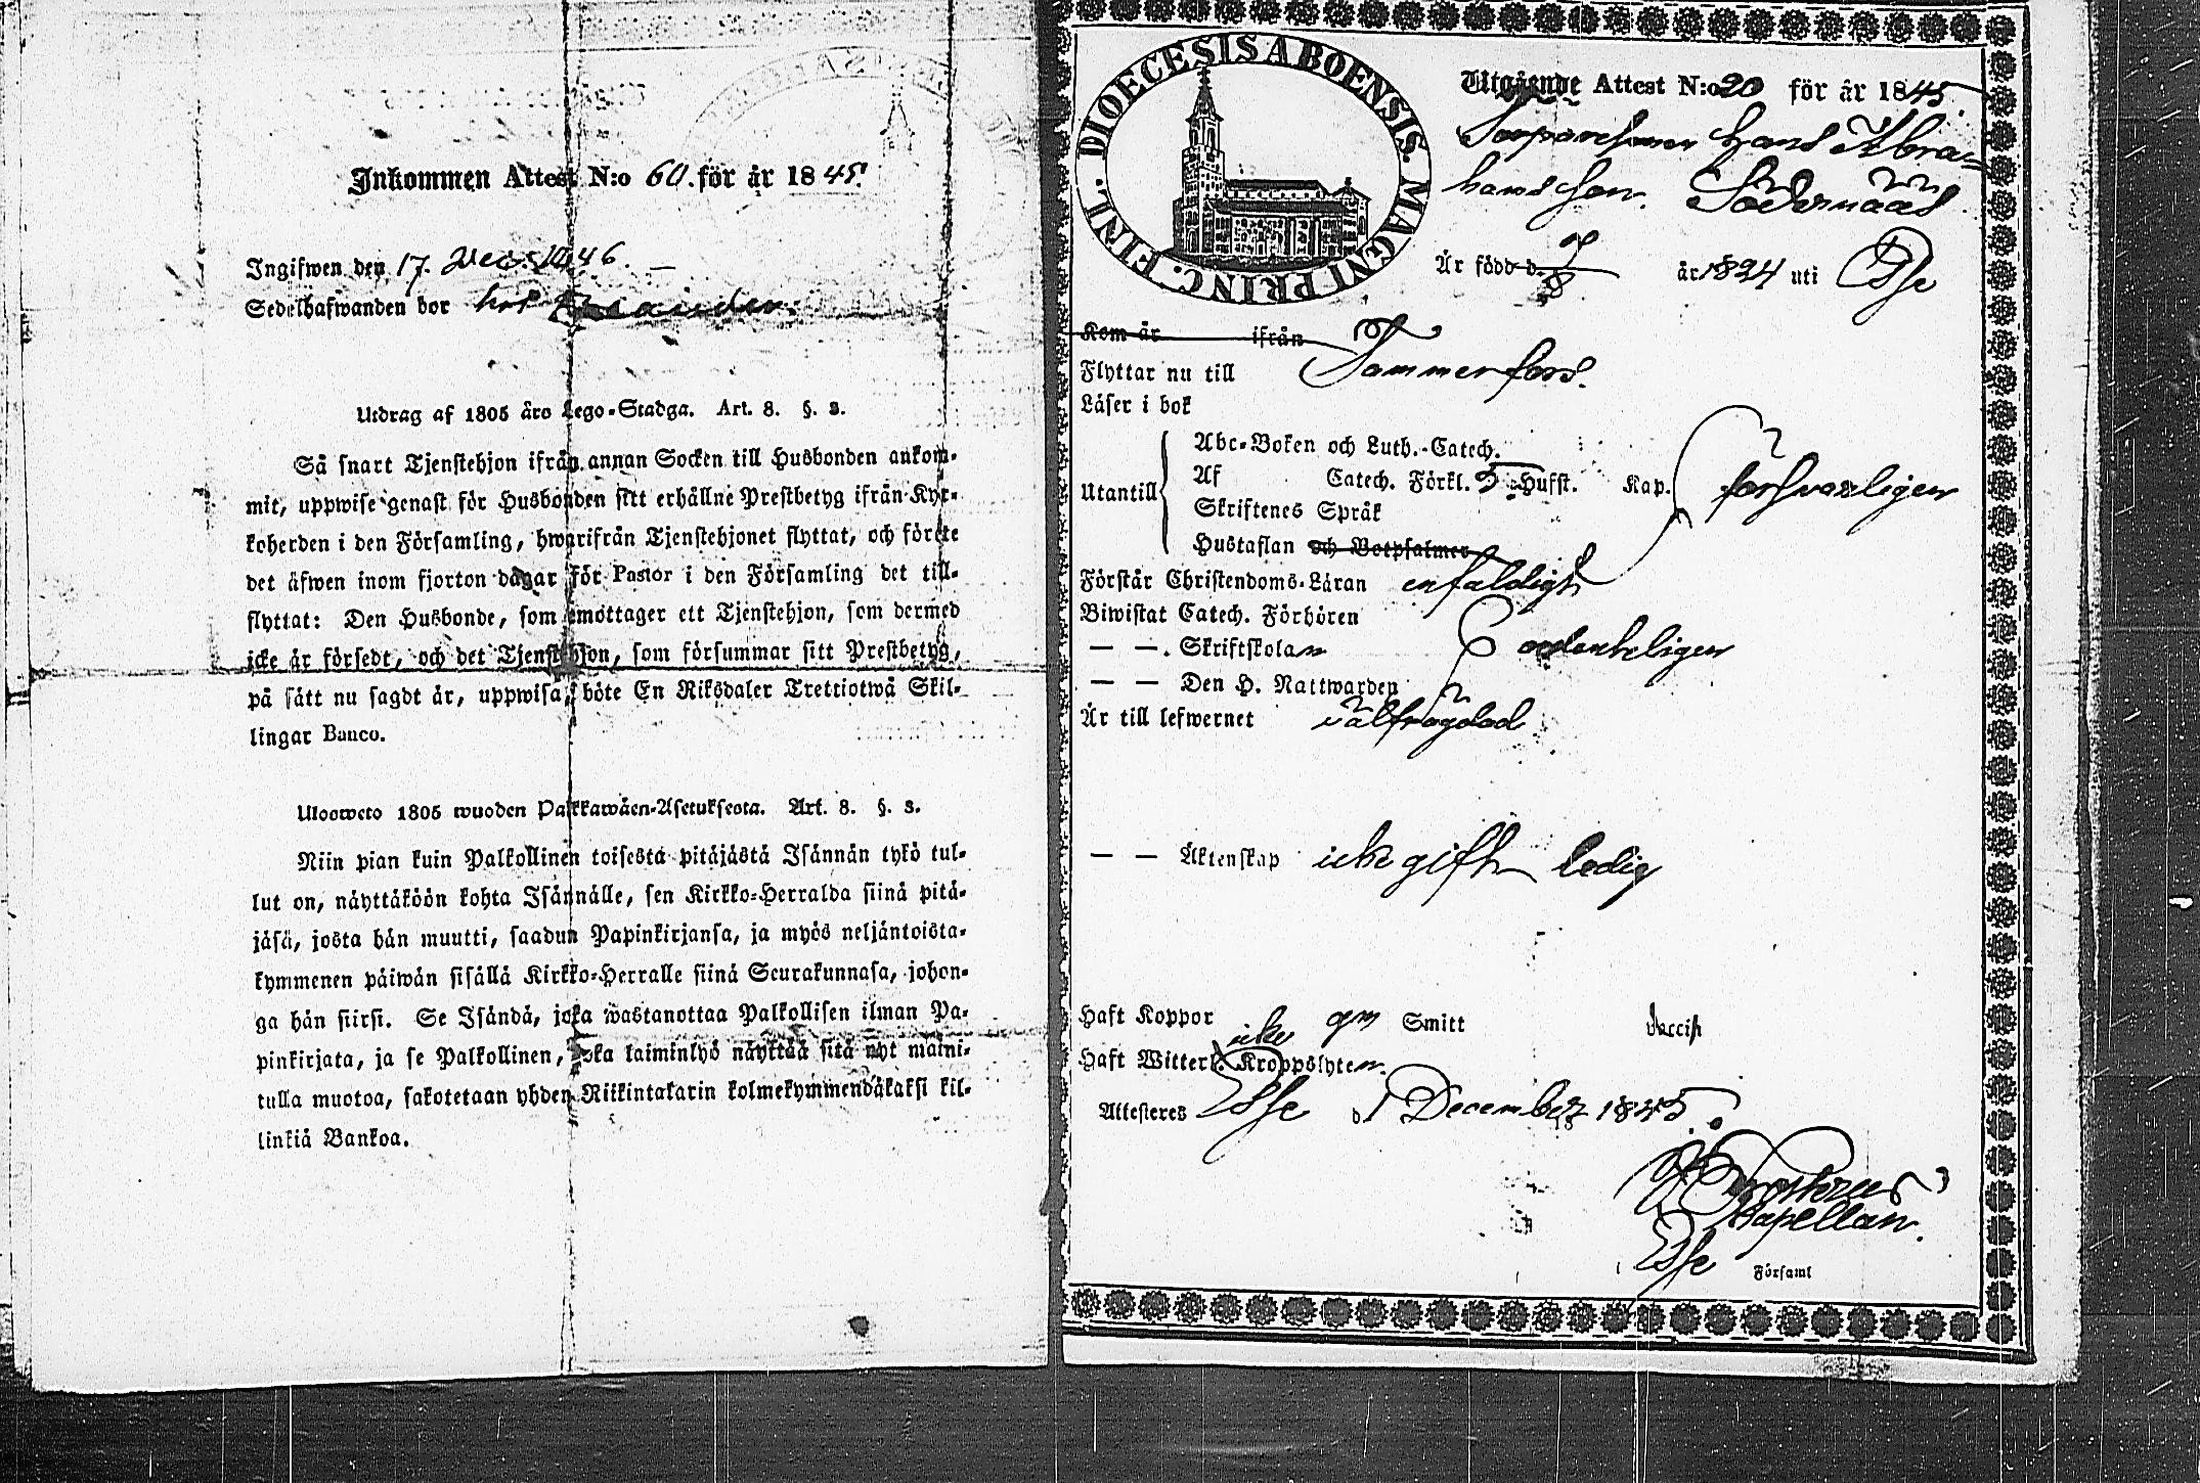 Inkommen Attest N:o 60. för år 1845.
Ingifwen den 17. Dec. 1846.
Sedelhafwanden bor hos
Utdrag af 1805 års Lego-Stadga. Art. 8. §. 3.
Så snart Tjenstehjon ifrån annan Socken till Husbonden ankom-
mit, uppwise genast för Husbonden sitt erhållne Prestbetyg ifrån Kyr-
koherden i den Församling, hwarifrån Tjenstehjonet flyttat, och förete
det äfwen inom fjorton dagar för Pastor i den Församling det till-
flyttat: Den Husbonde, som emottager ett Tjenstehjon, som dermed
icke är försedt, och det Tjenstehjon, som försummar sitt Prestbetyg,
på sätt nu sagdt är, uppwisa, böte En Riksdaler Trettiotwå Skil-
lingar Banco.
Uloosweto 1805 wuoden Palkkawäen-Asetuksesta. Art. 8. §. 3.
Niin pian kuin Palkollinen toisesta pitäjästä Isännän tykö tul-
lut on, näyttäköön kohta Isännälle, sen Kirkko-Herralda siinä pitä-
jäsä, josta hän muutti, saadun Papinkirjansa, ja myös neljäntoista-
kymmenen päiwän sisällä Kirkko-Herralle siinä Seurakunnasa, johon-
ga hän siirsi. Se Isändä, joka wastanottaa Palkollisen ilman Pa-
pinkirjata, ja se Palkollinen, joka laiminlyö näyttää sitä nyt maini-
tulla muotoa, sakotetaan yhden Riikintalarin kolmekymmendäkaksi kil-
linkiä Bankoa.
DIOECESIS ABOENSIS. MAGNI PRINC. FINL.
Utgående Attest N:o 20 för år 1845
Hans Abra-
hams son. Södernääs
Är född d. år 1824 uti Esse
Kom år ifrån
Flyttar nu till Tammerfors.
Läser i bok
Abc-Boken och Luth.-Catech.
Utantill Af Catech. Förkl. 5 Hufst. Kap. försvarligen
Skriftenes Språk
Hustaflan och Botpsalmer
Förstår Christendoms-Läran enfaldigt
Biwistat Catech. Förhören
— —. Skriftskolan ordenteligen
— — Den H. Nattwarden
Är till lefwernet välfrägdad
— — Äktenskap icke gift ledig
Haft Koppor gm Smitt vaccin
Haft Witterl. icke Kroppslyten.
Attesteras Esse d. 1 December 1845.
Kapellan.
Esse Församl